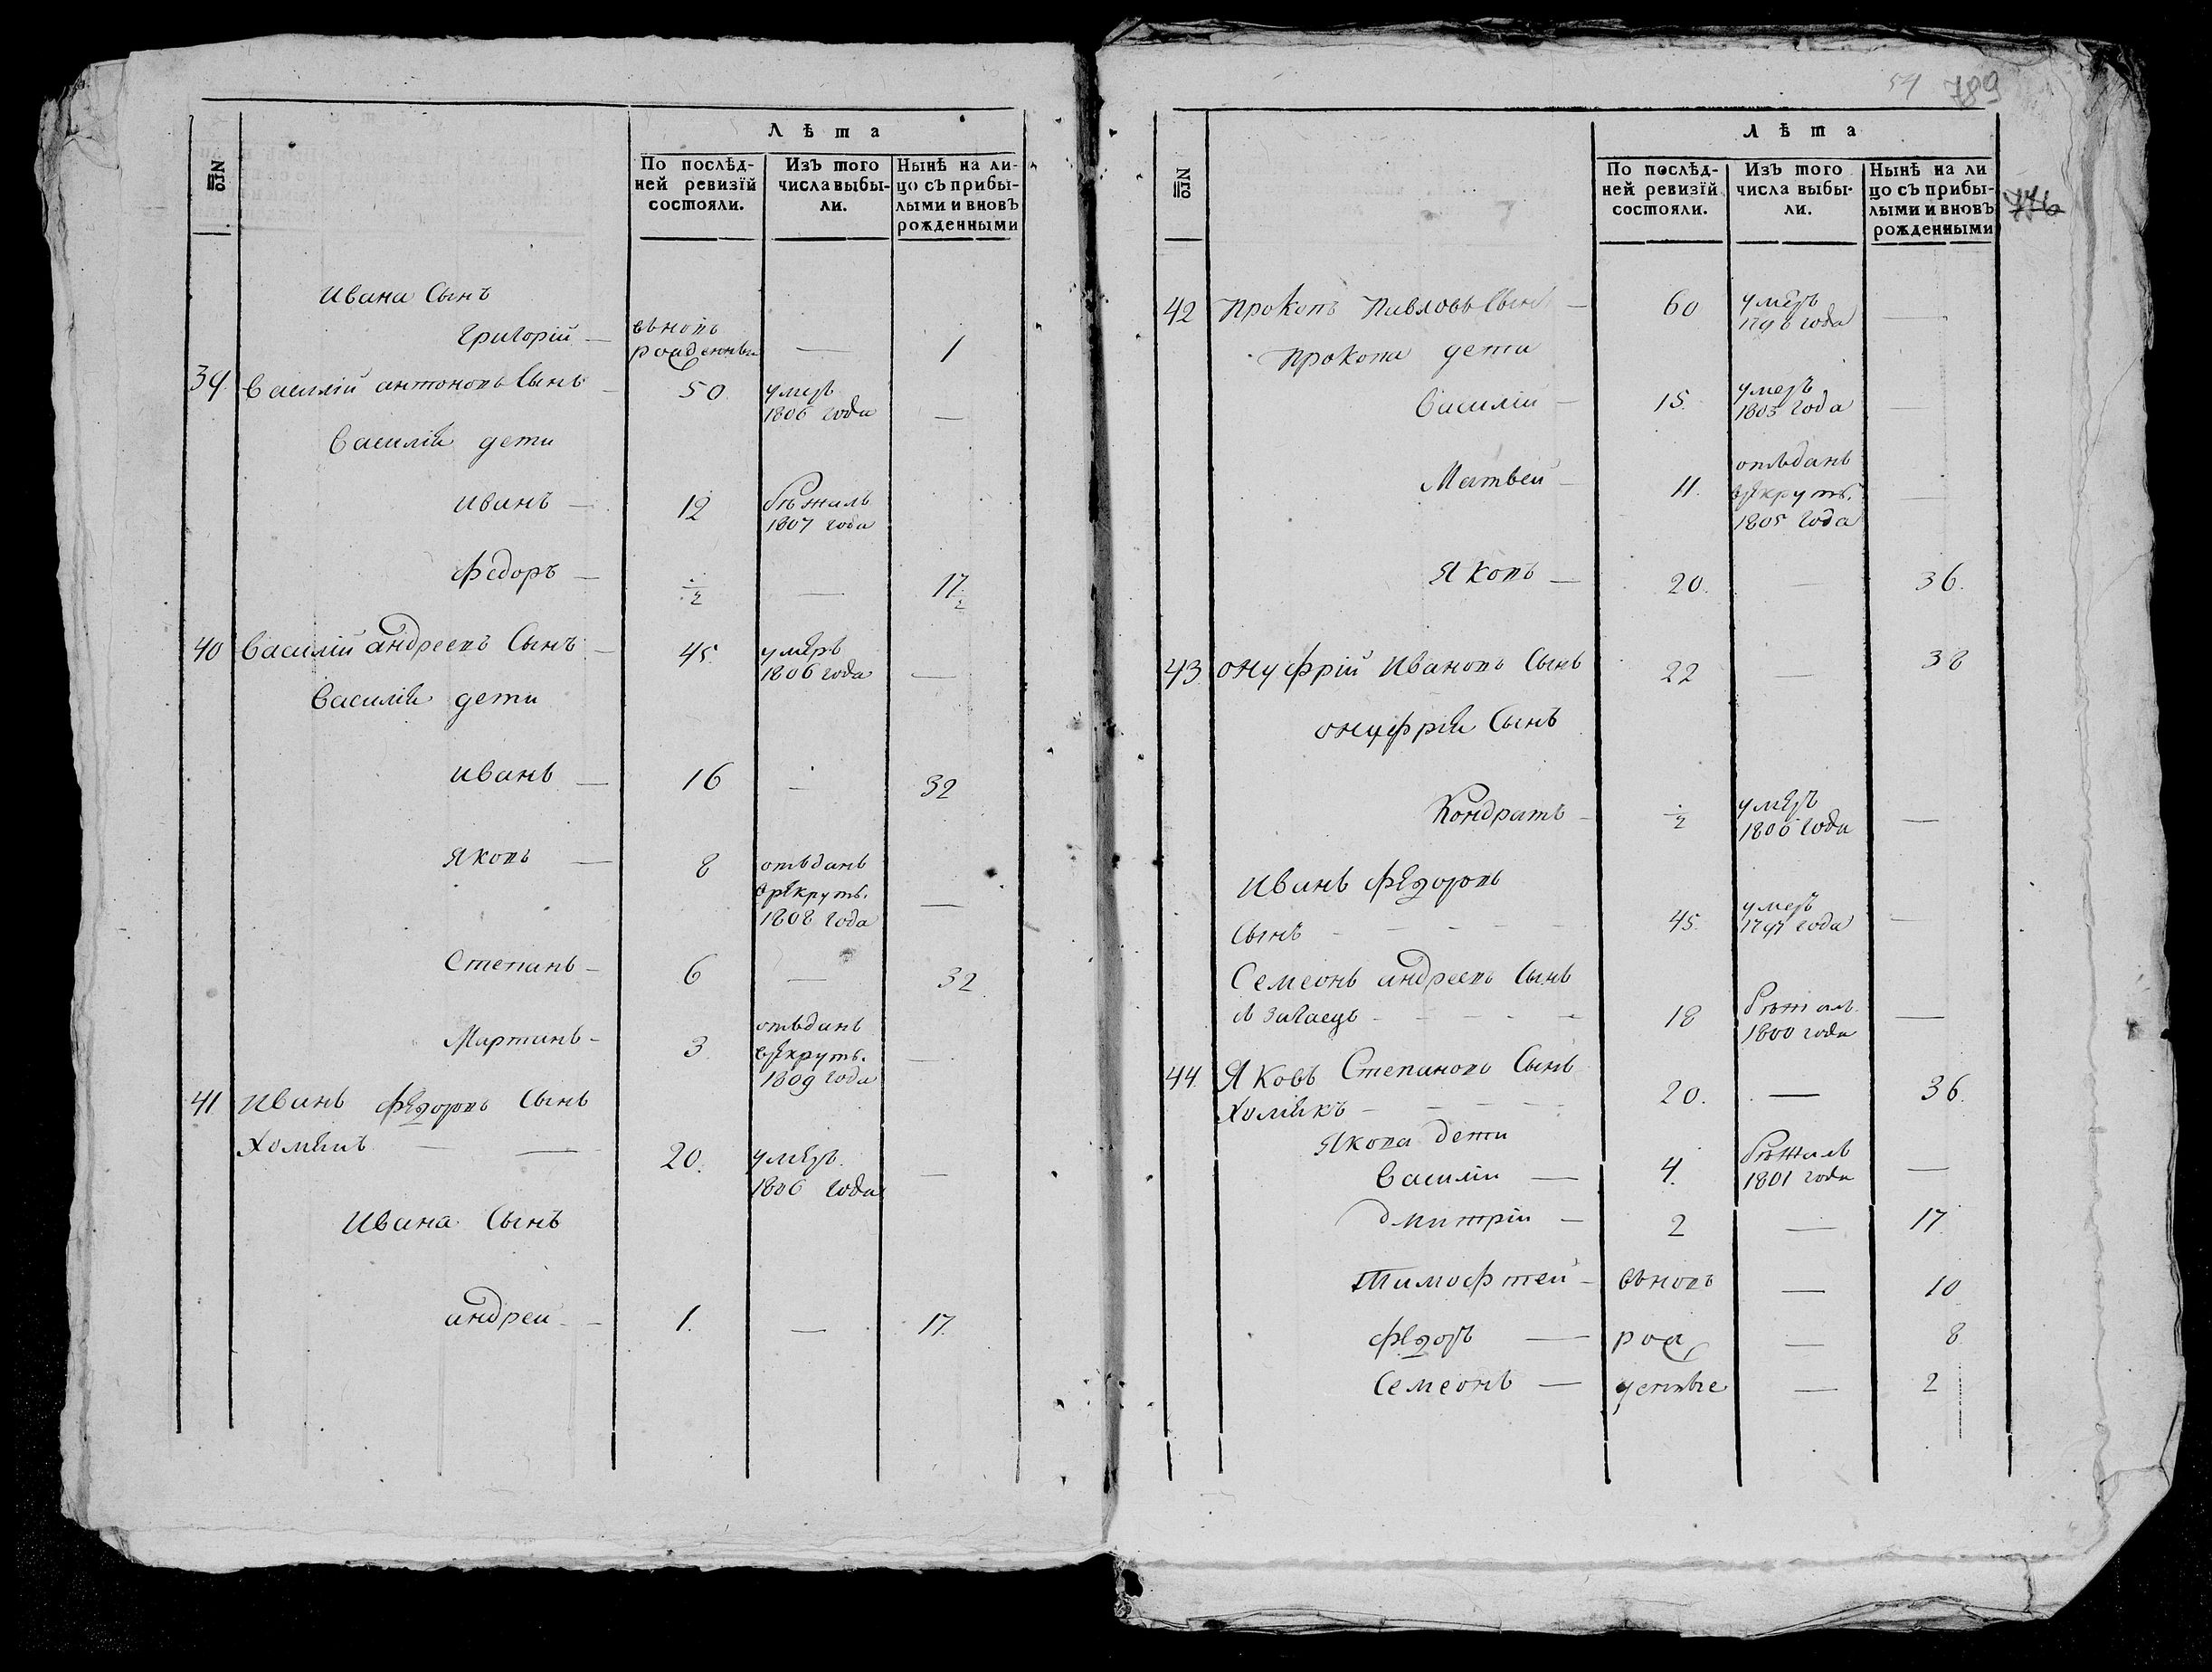 Лѣта
№
По послѣд-
ней ревизїй
состояли.
Изъ того
числа выбы-
ли.
Нынѣ на ли-
цо съ прибы-
лыми и вновь
рожденными
Ивана Сынъ
Григорій — вновь
рожденный — 1
39. Василій антоновъ Сынъ — 50 умеръ
1806 года —
Василія дети
иванъ — 12 бѣжалъ
1807 года
Федоръ — ½ — 17½
40 Василій андреевъ Сынъ — 45. умеръ
1806 года —
Василія дети
иванъ — 16 — 32
яковъ — 8 отъданъ
врекруты.
1808 года —
Степанъ — 6 — 32
Мартинъ — 3. отъданъ
врекруты.
1809 года —
41 иванъ федоровъ Сынъ
20. умеръ
1806 года —
Ивана Сынъ
андреи — 1. — 17.
54 789
Лѣта
№
По послѣд-
ней ревизїй
состояли.
Изъ того
числа выбы-
ли.
Нынѣ на ли
цо съ прибы-
лыми и вновь
рожденными
776
42 прокопъ Павловъ Сынъ — 60 умеръ
1796 года —
прокопа дети
Василіи — 15. умеръ
1803 года —
Матвеи — 11. отъданъ
врекруты.
1805 года —
Яковъ — 20. — 36.
43 онуфрій Ивановъ Сынъ 22 — 38
онуфрія Сынъ
Кондратъ — ½ умеръ
1806 года —
иванъ федоровъ
Сынъ — 45. умеръ
1797 года —
Семеонъ андреевъ Сынъ
18 бѣжалъ
1800 года —
44. Яковъ Степановъ Сынъ
Хомякъ — 20. — 36.
Якова дети
Василіи — 4. бѣжалъ
1801 года —
дмитріи — 2 — 17.
Тимофтеи — вновь — 10
федоръ — рож — 8
Семеонъ — денные — 2